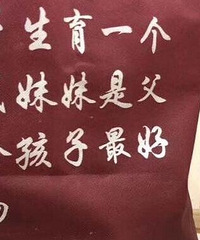 生育一个
妹妹是父
孩子最好